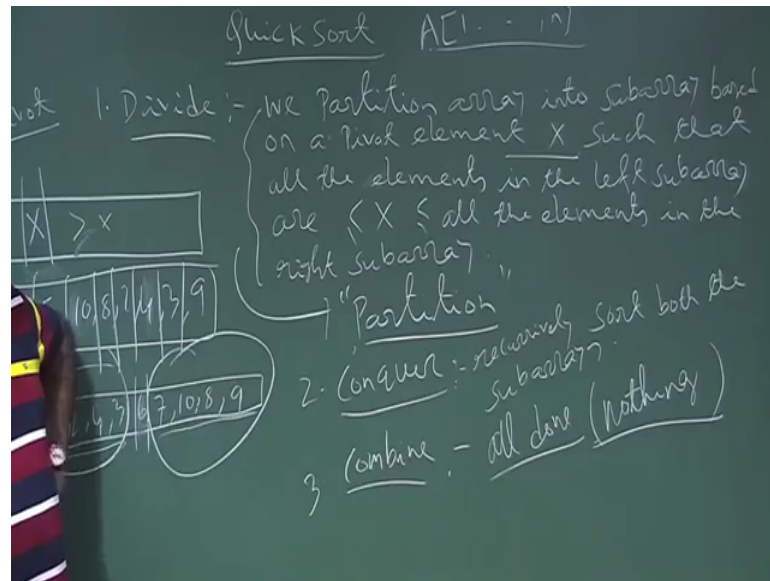 Quick Sort A[1. - - , n]
1. Divide :- We Partition array into Subarray based
on a Pivot element X Such that
all the elements in the left Subarray
are ≤ X ≤ all the elements in the
right Subarray.
"Partition"
2. Conquer :- recursively Sort both the
Subarrays.
3. Combine :- all done (nothing)
X > x
10, 8, 2, 4, 3, 9
4, 3 6 7, 10, 8, 9